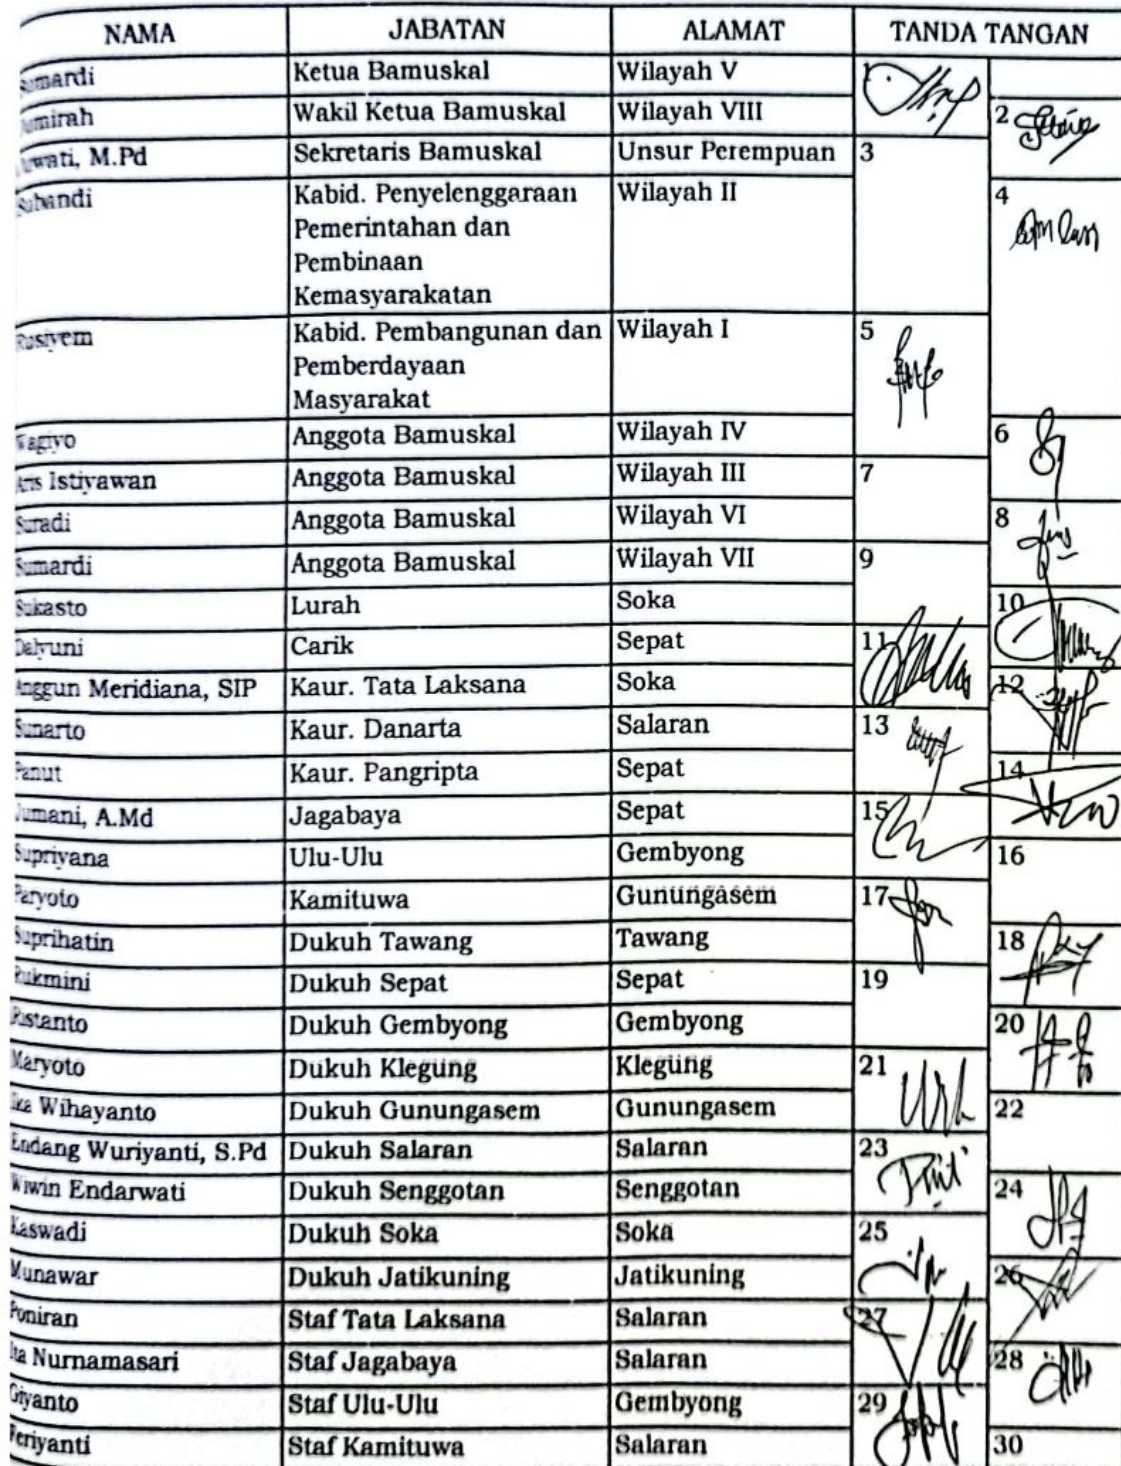 NAMA JABATAN ALAMAT TANDA TANGAN
Sumardi Ketua Bamuskal Wilayah V 1
Wakil Ketua Bamuskal Wilayah VIII 2
M.Pd Sekretaris Bamuskal Unsur Perempuan 3
Subandi Kabid. Penyelenggaraan Wilayah II 4
Pemerintahan dan
Pembinaan
Kemasyarakatan
Rusiyem Kabid. Pembangunan dan Wilayah I 5
Pemberdayaan
Masyarakat
Wagiyo Anggota Bamuskal Wilayah IV 6
Aris Istiyawan Anggota Bamuskal Wilayah III 7
Suradi Anggota Bamuskal Wilayah VI 8
Sumardi Anggota Bamuskal Wilayah VII 9
Sukasto Lurah Soka 10
Dalyuni Carik Sepat 11
Anggun Meridiana, SIP Kaur. Tata Laksana Soka 12
Sunarto Kaur. Danarta Salaran 13
Panut Kaur. Pangripta Sepat 14
Jumani, A.Md Jagabaya Sepat 15
Supriyana Ulu-Ulu Gembyong 16
Paryoto Kamituwa Gunungasem 17
Suprihatin Dukuh Tawang Tawang 18
Rukmini Dukuh Sepat Sepat 19
Ristanto Dukuh Gembyong Gembyong 20
Maryoto Dukuh Klegung Klegung 21
Ika Wihayanto Dukuh Gunungasem Gunungasem 22
Endang Wuriyanti, S.Pd Dukuh Salaran Salaran 23
Wiwin Endarwati Dukuh Senggotan Senggotan 24
Kaswadi Dukuh Soka Soka 25
Munawar Dukuh Jatikuning Jatikuning 26
Poniran Staf Tata Laksana Salaran 27
Ita Nurnamasari Staf Jagabaya Salaran 28
Giyanto Staf Ulu-Ulu Gembyong 29
Feriyanti Staf Kamituwa Salaran 30